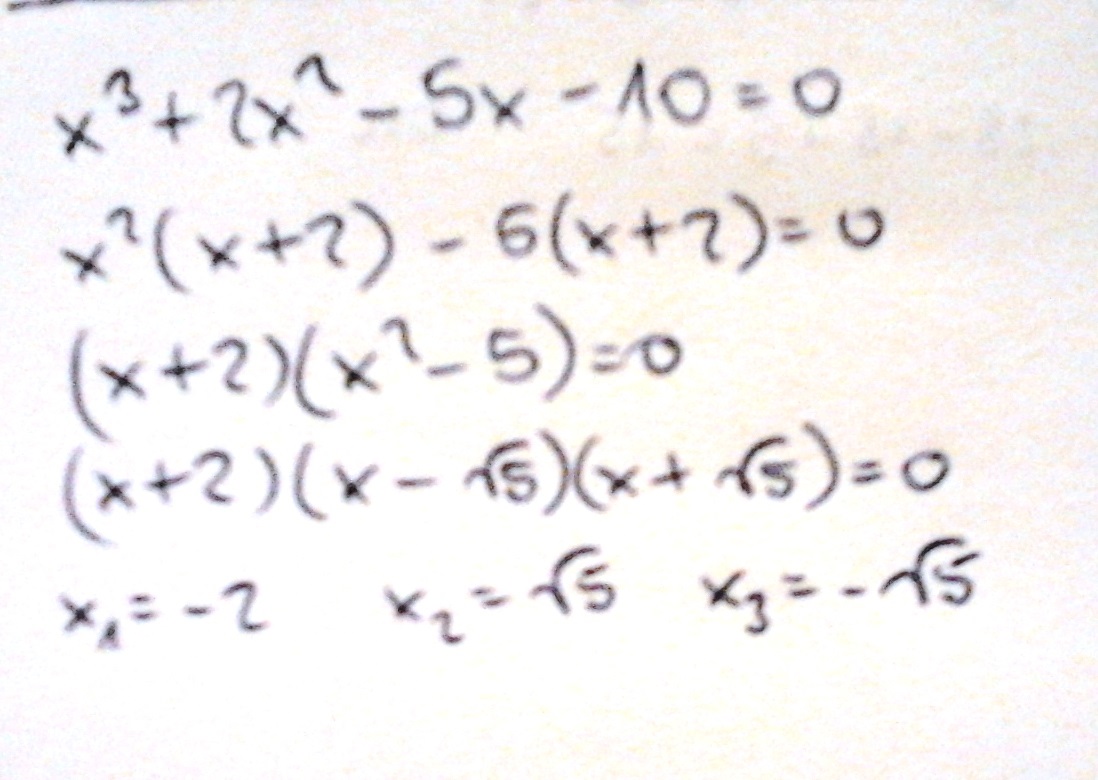 x³+2x²-5x-10=0
x²(x+2)-5(x+2)=0
(x+2)(x²-5)=0
(x+2)(x-√5)(x+√5)=0
x₁=-2 x₂=√5 x₃=-√5